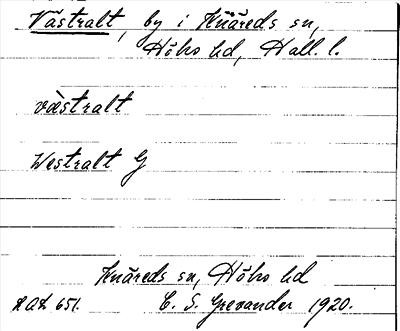 Västralt, by i Knäreds sn,
Höks hd, Hall. l.
væstralt
Westralt G
Knäreds sn, Höks hd
651. C. S. Grexander 1920.